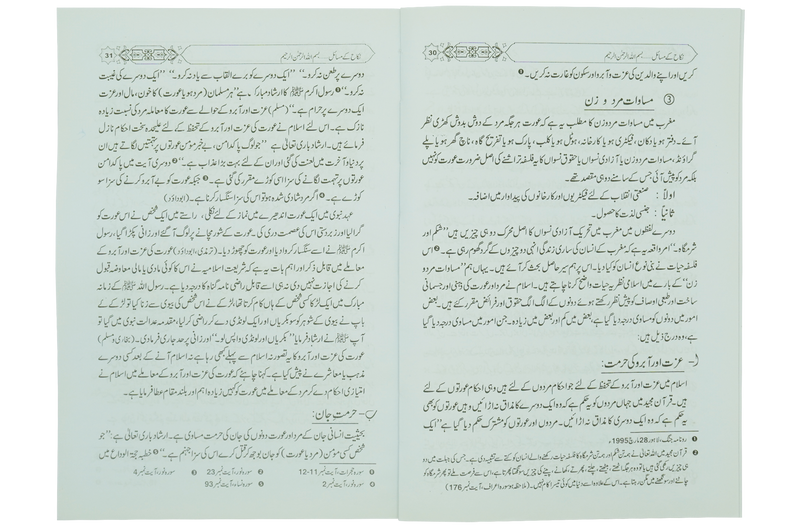 نکاح کے مسائل ..... بسم اللہ الرحمٰن الرحیم
30
کریں اور اپنے والدین کی عزت و آبرو اور سکون کو غارت نہ کریں۔
③ مساوات مرد و زن
مغرب میں مساوات مرد و زن کا مطلب یہ ہے کہ عورت ہر جگہ مرد کے دوش بدوش کھڑی نظر
آئے۔ دفتر ہو یا دکان، فیکٹری ہو یا کارخانہ، ہوٹل ہو یا کلب، پارک ہو یا تفریح گاہ، ناچ گھر ہو یا پلے
گراؤنڈ، مساوات مرد و زن یا آزادی نسواں یا حقوق نسواں کا یہ فلسفہ تراشنے کی اصل ضرورت عورت کو نہیں
بلکہ مرد کو پیش آئی، جس کے سامنے دو ہی مقصد تھے۔
اولاً : صنعتی انقلاب کے لئے فیکٹریوں اور کارخانوں کی پیداوار میں اضافہ۔
ثانیاً : جنسی لذت کا حصول۔
دوسرے لفظوں میں مغرب میں تحریک آزادی نسواں کا اصل محرک دو ہی چیزیں ہیں "شکم اور
شرمگاہ۔" امر واقعہ یہ ہے کہ مغرب کے انسان کی ساری زندگی انہی دو چیزوں کے گرد گھوم رہی ہے۔
فلسفہ حیات نے بنی نوع انسان کو کیا دیا۔ اس پر ہم سیر حاصل بحث کر آئے ہیں۔ یہاں ہم "مساوات مرد و
زن" کے بارے میں اسلامی نظریہ حیات واضح کرنا چاہتے ہیں۔ اسلام نے مرد اور عورت کی ذہنی اور جسمانی
ساخت اور طبعی اوصاف کو پیش نظر رکھتے ہوئے دونوں کے الگ الگ حقوق اور فرائض مقرر کئے ہیں۔ بعض
امور میں دونوں کو مساوی درجہ دیا گیا ہے، بعض میں کم اور بعض میں زیادہ۔ جن امور میں مساوی درجہ دیا گیا
ہے، وہ درج ذیل ہیں:
ا)- عزت اور آبرو کی حرمت:
اسلام میں عزت اور آبرو کے تحفظ کے لئے جو احکام مردوں کے لئے ہیں وہی احکام عورتوں کے لئے
ہیں۔ قرآن مجید میں جہاں مردوں کو یہ حکم ہے کہ وہ ایک دوسرے کا مذاق نہ اڑائیں وہیں عورتوں کو بھی
یہ حکم ہے کہ وہ ایک دوسرے کا مذاق نہ اڑائیں۔ مردوں اور عورتوں کو مشترک حکم دیا گیا ہے "ایک
روزنامہ جنگ، لاہور، 28 مارچ 1995ء
(ملاحظہ ہو سورہ اعراف، آیت نمبر 176)
نکاح کے مسائل ..... بسم اللہ الرحمٰن الرحیم
31
دوسرے پر طعن نہ کرو۔" "ایک دوسرے کو برے القاب سے یاد نہ کرو۔" "ایک دوسرے کی غیبت
نہ کرو۔" رسول اکرم ﷺ کا ارشاد مبارک ہے "ہر مسلمان (مرد ہو یا عورت) کا خون، مال اور عزت
ایک دوسرے پر حرام ہے۔" (مسلم) عزت اور آبرو کے حوالے سے عورت کا معاملہ مرد کی نسبت زیادہ
نازک ہے۔ اس لئے اسلام نے عورت کی عزت اور آبرو کے تحفظ کے لئے علیحدہ سخت احکام نازل
فرمائے ہیں۔ ارشاد باری تعالیٰ ہے "جو لوگ پاکدامن، بے خبر مومن عورتوں پر تہمتیں لگاتے ہیں ان
پر دنیا و آخرت میں لعنت کی گئی اور ان کے لئے بہت بڑا عذاب ہے۔" دوسری آیت میں پاکدامن
عورتوں پر تہمت لگانے کی سزا اسی کوڑے مقرر کی گئی ہے۔ جبکہ عورت کو بے آبرو کرنے کی سزا سو
کوڑے ہے۔ اگر مرد شادی شدہ ہو تو اس کی سزا سنگسار کرنا ہے۔ (ابو داؤد)
عہد نبوی میں ایک عورت اندھیرے میں نماز کے لئے نکلی، راستے میں ایک شخص نے اس عورت کو
گرا لیا اور زبردستی اس کی عصمت دری کی۔ عورت کے شور مچانے پر لوگ آ گئے اور زانی پکڑا گیا، رسول
اکرم ﷺ نے اسے سنگسار کروا دیا اور عورت کو چھوڑ دیا۔ (ترمذی، ابوداؤد) عورت کی عزت و آبرو کے
معاملے میں قابل ذکر اور اہم بات یہ ہے کہ شریعت اسلامیہ نے اس کا کوئی مادی یا مالی معاوضہ قبول
کرنے کی اجازت نہیں دی نہ ہی اسے قابل راضی نامہ گناہ کا درجہ دیا ہے۔ رسول اللہ ﷺ کے زمانہ
مبارک میں ایک لڑکا کسی شخص کے ہاں کام کرتا تھا، لڑکے نے اس شخص کی بیوی سے زنا کیا تو لڑکے کے
باپ نے بیوی کے شوہر کو سو بکریاں اور ایک لونڈی دے کر راضی کر لیا، مقدمہ عدالت نبوی میں گیا تو
آپ ﷺ نے ارشاد فرمایا "بکریاں اور لونڈی واپس لو۔" اور زانی پر حد جاری فرما دی۔ (بخاری و مسلم)
عورت کی عزت اور آبرو کا یہ تصور نہ اسلام سے پہلے کبھی رہا ہے نہ اسلام آنے کے بعد کسی دوسرے
مذہب یا معاشرے نے پیش کیا ہے۔ کہنا چاہئے کہ عورت کی عزت و آبرو کے معاملے میں اسلام نے
امتیازی احکام دے کر مرد کے معاملے میں عورت کو کہیں زیادہ اہم اور بلند مقام عطا فرمایا ہے۔
ب- حرمت جان:
بحیثیت انسانی جان کے مرد اور عورت دونوں کی جان کی حرمت مساوی ہے۔ ارشاد باری تعالیٰ ہے: "جو
شخص کسی مؤمن (مرد یا عورت) کو جان بوجھ کر قتل کرے اس کی سزا جہنم ہے۔" خطبہ حجۃ الوداع میں
سورہ حجرات، آیت نمبر 11-12 سورہ نور، آیت نمبر 23 سورہ نور، آیت نمبر 4
سورہ نور، آیت نمبر 2 سورہ نساء، آیت نمبر 93